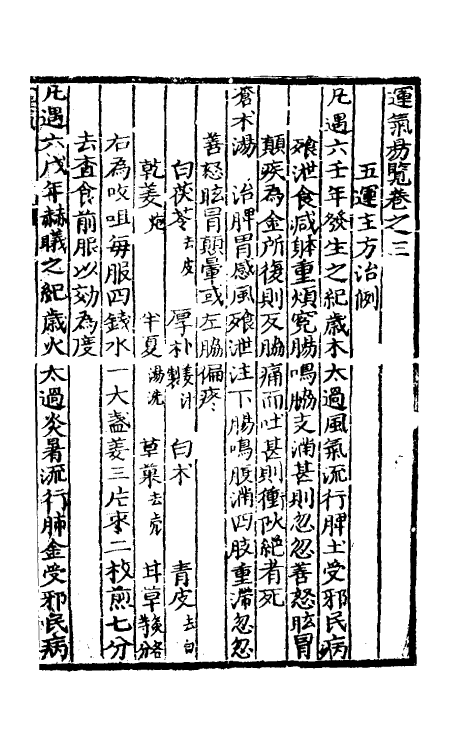 運氣易覽卷之三
五運主方治例
凡遇六壬年發生之紀歲木太過風氣流行脾土受邪民病
飧泄食減體重煩冤腸鳴脇支滿甚則忽忽善怒眩冒
顛疾為金所復則反脇痛而吐甚則衝陽絕者死
蒼术湯 治脾胃感風飧泄注下腸鳴腹滿四肢重滯忽忽
善怒眩冒顛暈或左脇偏疼
白茯苓去皮 厚朴薑汁製 白术 青皮去白
乾姜炮 半夏湯洗 草菓去壳 甘草炙各等分
右為㕮咀每服四錢水一大盞姜三片枣二枚煎七分
去查食前服以効為度
凡遇六戊年赫曦之紀歲火太過炎暑流行肺金受邪民病